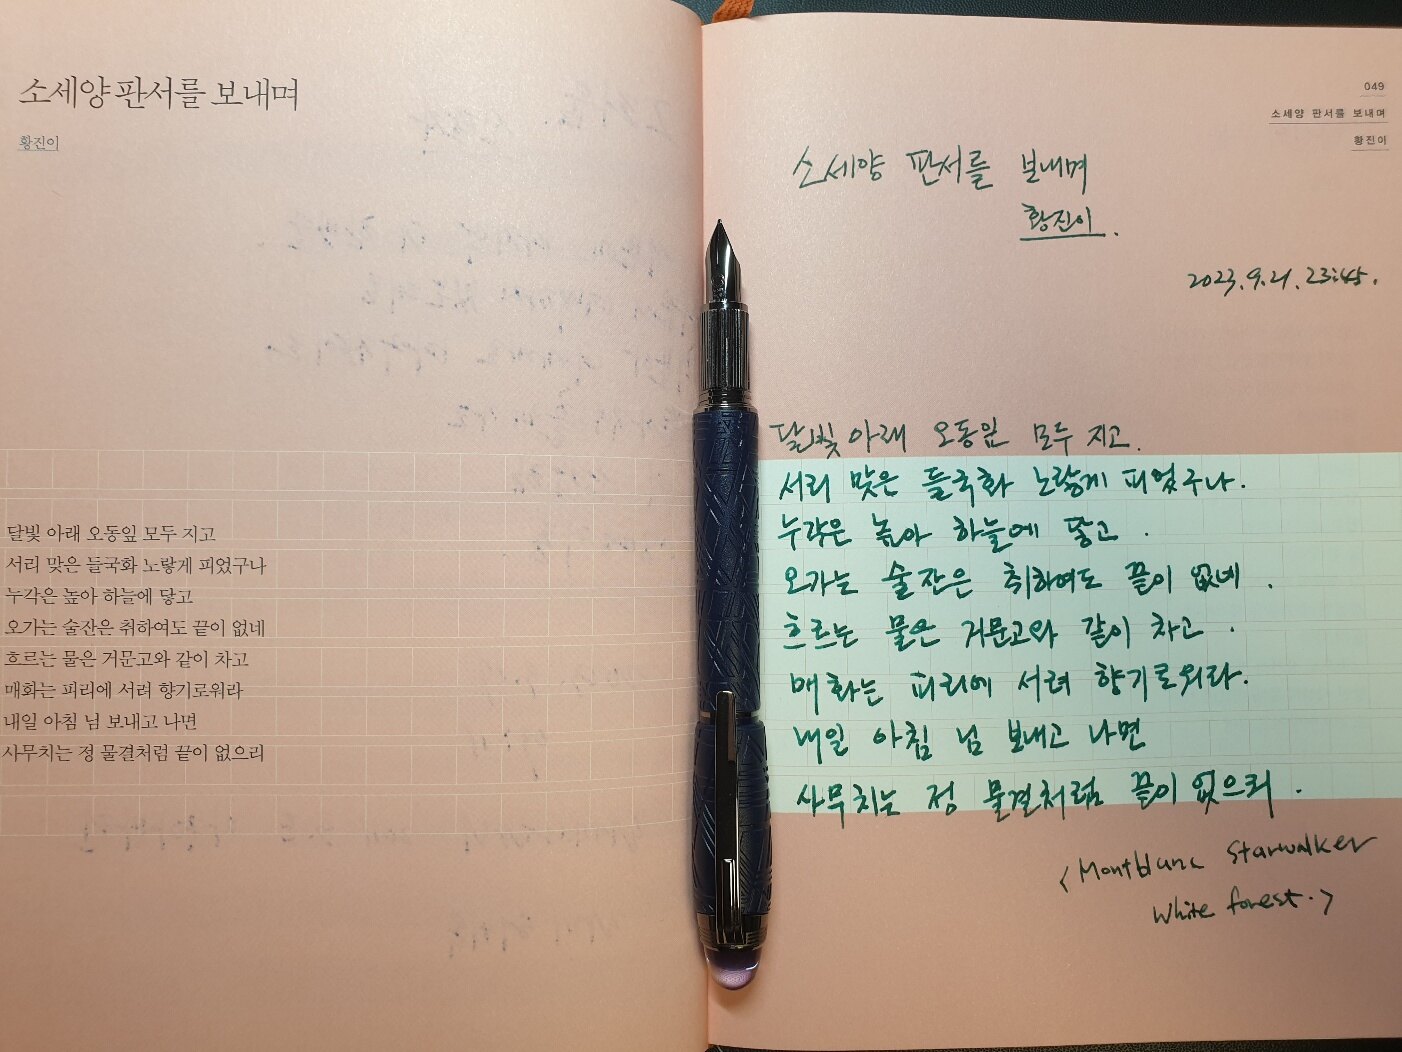 소세양 판서를 보내며
황진이
달빛 아래 오동잎 모두 지고
서리 맞은 들국화 노랗게 피었구나
누각은 높아 하늘에 닿고
오가는 술잔은 취하여도 끝이 없네
흐르는 물은 거문고와 같이 차고
매화는 피리에 서려 향기로워라
내일 아침 님 보내고 나면
사무치는 정 물결처럼 끝이 없으리
049
소세양 판서를 보내며
황진이
소세양 판서를 보내며
황진이.
2023.9.21. 23:45.
달빛 아래 오동잎 모두 지고.
서리 맞은 들국화 노랗게 피었구나.
누각은 높아 하늘에 닿고.
오가는 술잔은 취하여도 끝이 없네.
흐르는 물은 거문고와 같이 차고.
매화는 피리에 서려 향기로워라.
내일 아침 님 보내고 나면
사무치는 정 물결처럼 끝이 없으리.
<Montblanc Starwalker
White forest.>